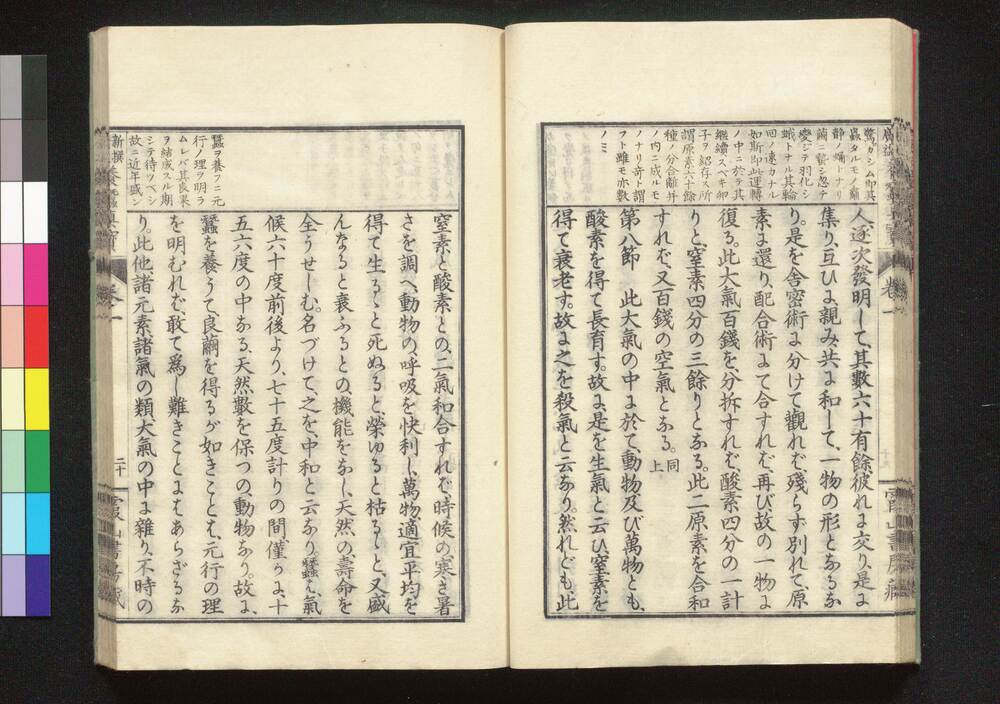 驚カシム即其
蟲タルモノ屬
静ノ蛹トナリ
繭ニ蟄シ忽チ
變ジテ羽化シ
蛾トナル其輪
回ノ速カナル
如斯即此運轉
ノ中ニ於テ其
繼續スベキ卵
子ヲ紹存ス所
謂原素六十餘
種ノ分合離并
ノ内ニ成ルモ
ノナリ奇ト謂
フト雖モ亦數
ノミ
人逐次發明して、其數六十有餘、彼れに交り、是に
集り、互ひに親み、共に和して、一物の形となるな
り。是を舎密術に分けて觀れば、殘らず別れて、原
素に還り、配合術にて合すれば、再び故の一物に
復る。此大氣百錢を、分拆すれば、酸素四分の一計
りと、窒素四分の三餘りとなる。此二原素を合和
すれば、又百錢の空氣となる。同上
第八節 此大氣の中に於て、動物及び萬物とも、
酸素を得て長育す。故に、是を生氣と云ひ、窒素を
得て衰老す。故に之を殺氣と云なり。然れども、此
卷一
霞山書房藏
蠶ヲ養フニ元
行ノ理ヲ明ラ
ムレバ其良果
ヲ結成スル期
シテ待ツベシ
故ニ近年盛ン
窒素と酸素との、二氣和合すれば、時候の、寒さ暑
さを調へ、動物の、呼吸を快利し、萬物適宜平均を
得て生るゝと死ぬると、榮ゆると枯るゝと、又盛
んなると衰ふるとの機能をなし、天然の、壽命を
全うせしむ。名づけて、之を、中和と云なり。蠶は、氣
候六十度前後より、七十五度計りの間、僅かに、十
五六度の中なる、天然數を保つの、動物なり。故に、
蠶を養うて良繭を得るが如きことも、元行の理
を明むれば、敢て爲し難きことにはあらざるな
り。此他諸元素諸氣の類大氣の中に雜り、不時の
新撰養蠶
卷一
二十
霞山書房藏